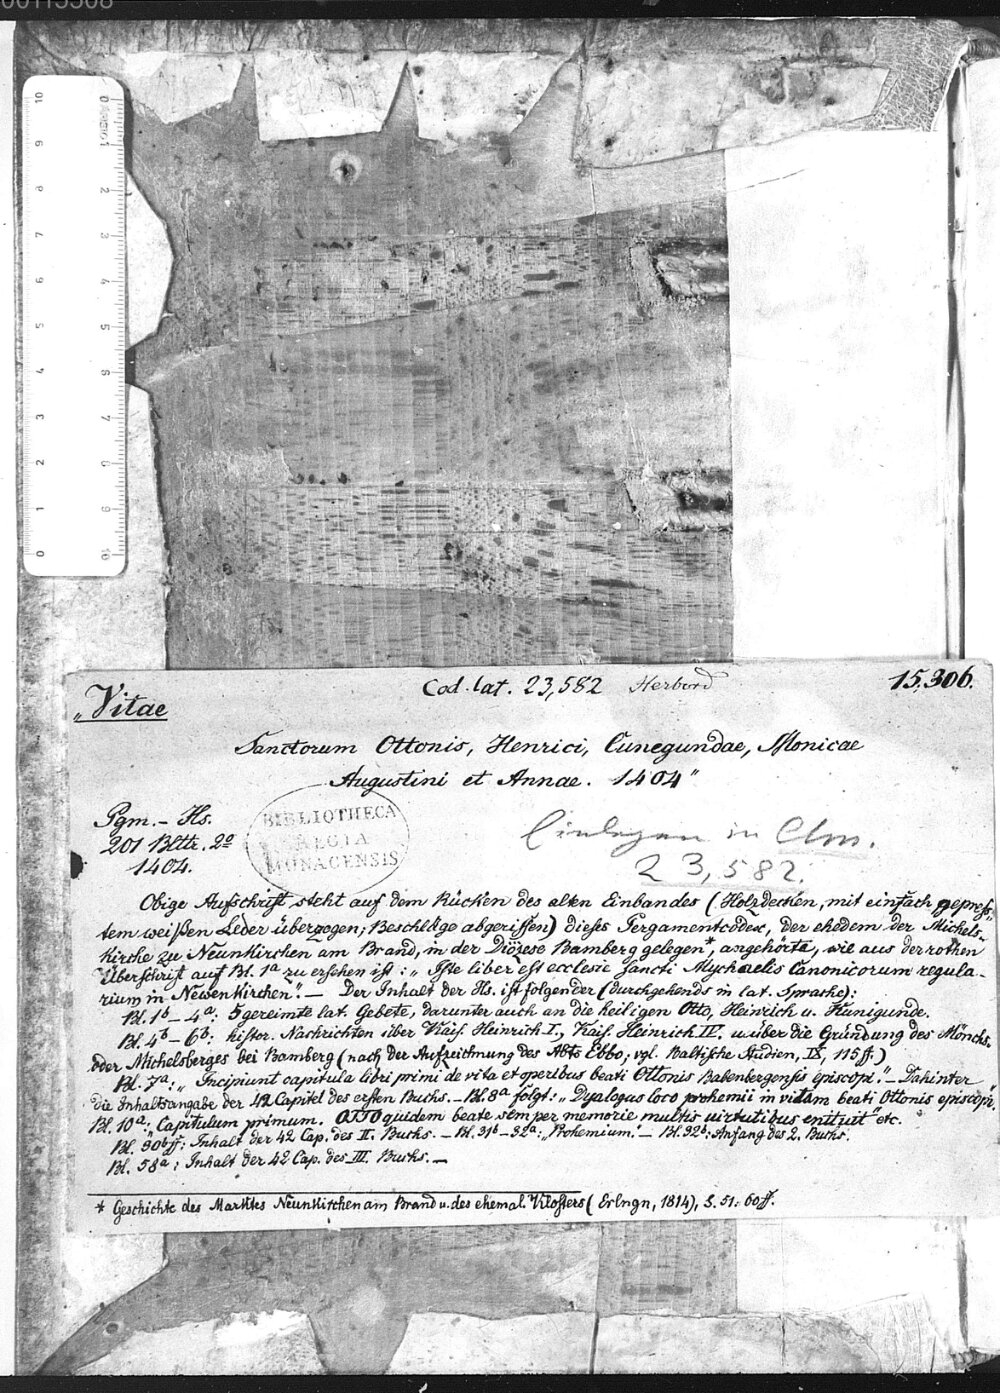 00113508
Cod. lat. 23,582 Herbord 15,306.
„Vitae
Sanctorum Ottonis, Henrici, Cunegundae, Monicae
Augustini et Annae. 1404"
Pgm. - Hs.
201 Bltr. 2º
1404.
BIBLIOTHECA
REGIA
MONACENSIS
Einlegen in Clm.
23,582.
Obige Aufschrift steht auf dem Rücken des alten Einbandes (Holzdecken, mit einfach gepreß-
tem weißen Leder überzogen; Beschläge abgeriffen) dieses Pergamentcodex, der ehedem der Michels-
kirche zu Neunkirchen am Brand, in der Diözese Bamberg gelegen*, angehörte, wie aus der rothen
Überschrift auf Bl. 1ª zu ersehen ist: „Iste liber est ecclesie sancti Mychaelis Canonicorum regula-
rium in Newenkirchen". — Der Inhalt der Hs. ist folgender (durchgehends in lat. Sprache):
Bl. 1ᵇ – 4ª: 5 gereimte lat. Gebete, darunter auch an die heiligen Otto, Heinrich u. Kunigunde.
Bl. 4ᵇ – 6ᵇ: histor. Nachrichten über Kais. Heinrich I., Kais. Heinrich IV. u. über die Gründung des Mönchs-
oder Michelsberges bei Bamberg (nach der Aufzeichnung des Abts Ebbo; vgl. Baltische Studien, IX, 115 ff.)
Bl. 7ª: „Incipiunt capitula libri primi de vita et operibus beati Ottonis Babenbergensis episcopi." – Dahinter
die Inhaltsangabe der 42 Capitel des ersten Buchs. – Bl. 8ª folgt: „Dyalogus loco prohemii in vitam beati Ottonis episcopi".
Bl. 10ª: „Capitulum primum. OTTO quidem beate semper memorie multis virtutibus enituit" etc.
Bl. 30ᵇ ff: Inhalt der 42 Cap. des II. Buchs. – Bl. 31ᵇ – 32ª: „Prohemium." – Bl. 32ᵇ: Anfang des 2. Buchs.
Bl. 58ª: Inhalt der 42 Cap. des III. Buchs. —
* Geschichte des Marktes Neunkirchen am Brand u. des ehemal. Klosters (Erlngn, 1814), S. 51. 60 ff.